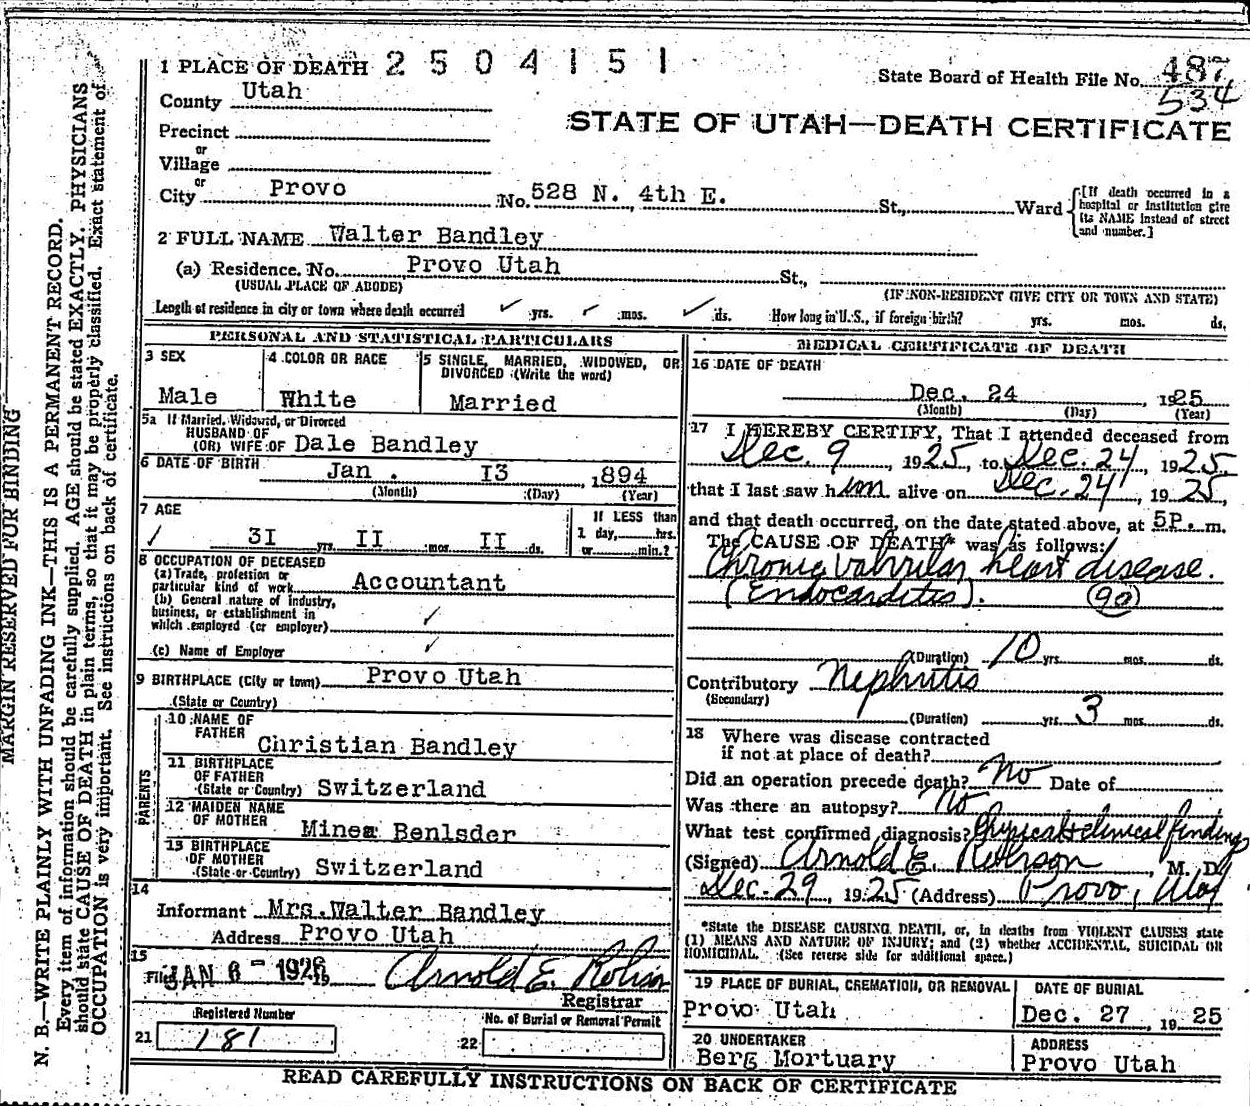 1 PLACE OF DEATH 2504151
State Board of Health File No. 487
534
County Utah
STATE OF UTAH—DEATH CERTIFICATE
Precinct
or
Village
or
City Provo No. 528 N. 4th E. St., Ward
[If death occurred in a
hospital or institution give
its NAME instead of street
and number.]
2 FULL NAME Walter Bandley
(a) Residence. No. Provo Utah St.,
(USUAL PLACE OF ABODE) (IF NON-RESIDENT GIVE CITY OR TOWN AND STATE)
Length of residence in city or town where death occurred ✓ yrs. ✓ mos. ✓ ds. How long in U.S., if foreign birth? yrs. mos. ds.
PERSONAL AND STATISTICAL PARTICULARS
3 SEX 4 COLOR OR RACE 5 SINGLE, MARRIED, WIDOWED, OR
DIVORCED (Write the word)
Male White Married
5a If Married, Widowed, or Divorced
HUSBAND OF
(OR) WIFE OF Dale Bandley
6 DATE OF BIRTH Jan. I3, 1894
(Month) (Day) (Year)
7 AGE If LESS than
✓ 3I yrs. II mos. II ds. 1 day, hrs.
or min.?
8 OCCUPATION OF DECEASED
(a) Trade, profession or
particular kind of work Accountant
(b) General nature of industry,
business, or establishment in
which employed (or employer) ✓
(c) Name of Employer ✓
9 BIRTHPLACE (City or town) Provo Utah
(State or Country)
PARENTS
10 NAME OF
FATHER Christian Bandley
11 BIRTHPLACE
OF FATHER
(State or Country) Switzerland
12 MAIDEN NAME
OF MOTHER Minea Benlsder
13 BIRTHPLACE
OF MOTHER
(State or Country) Switzerland
14
Informant Mrs. Walter Bandley
Address Provo Utah
15
Filed JAN 6 - 1926 Arnold E. Robison
Registrar
Registered Number No. of Burial or Removal Permit
21 181 22
MEDICAL CERTIFICATE OF DEATH
16 DATE OF DEATH
Dec. 24, 1925
(Month) (Day) (Year)
17 I HEREBY CERTIFY, That I attended deceased from
Dec. 9, 1925, to Dec. 24, 1925,
that I last saw him alive on Dec. 24, 1925,
and that death occurred, on the date stated above, at 5P. m.
The CAUSE OF DEATH* was as follows:
Chronic valvular heart disease.
(Endocarditis). (90)
(Duration) 10 yrs. mos. ds.
Contributory Nephritis
(Secondary)
(Duration) yrs. 3 mos. ds.
18 Where was disease contracted
if not at place of death?
Did an operation precede death? No Date of
Was there an autopsy? No
What test confirmed diagnosis? Physical & clinical findings
(Signed) Arnold E. Robison, M. D.
Dec. 29, 1925 (Address) Provo, Utah
*State the DISEASE CAUSING DEATH, or, in deaths from VIOLENT CAUSES state
(1) MEANS AND NATURE OF INJURY; and (2) whether ACCIDENTAL, SUICIDAL OR
HOMICIDAL. (See reverse side for additional space.)
19 PLACE OF BURIAL, CREMATION, OR REMOVAL DATE OF BURIAL
Provo Utah Dec. 27, 1925
20 UNDERTAKER ADDRESS
Berg Mortuary Provo Utah
READ CAREFULLY INSTRUCTIONS ON BACK OF CERTIFICATE
MARGIN RESERVED FOR BINDING
N. B.—WRITE PLAINLY WITH UNFADING INK—THIS IS A PERMANENT RECORD.
Every item of information should be carefully supplied. AGE should be stated EXACTLY. PHYSICIANS
should state CAUSE OF DEATH in plain terms, so that it may be properly classified. Exact statement of
OCCUPATION is very important. See instructions on back of certificate.